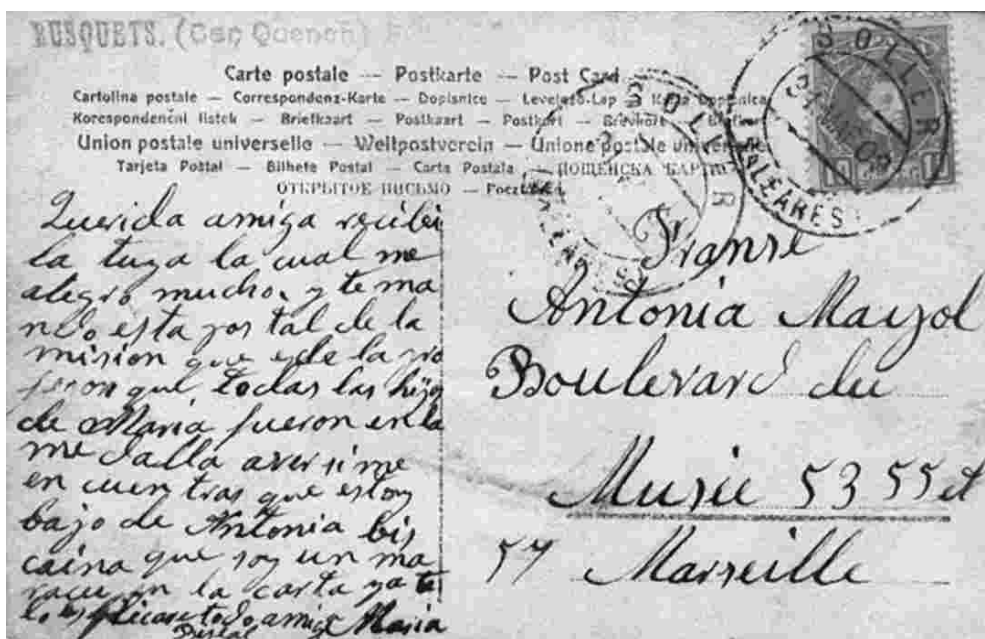 BUSQUETS. (Can Quench)
Carte postale — Postkarte — Post Card
Cartolina postale — Correspondenz-Karte — Dopisnice — Levelező-Lap —
Korespondenční listek — Briefkaart — Postkaart — Postkort — Brevkort —
Union postale universelle — Weltpostverein — Unione postale universale
Tarjeta Postal — Bilhete Postal — Carta Postala — ПОЩЕНСКА КАРТА
ОТКРЫТОЕ ПИСЬМО —
SOLLER
BALEARES
SOLLER
BALEARES
Querida amiga recibi
la tuya la cual me
alegro mucho, y te ma
ndo esta pos tal de la
mision que de la
que todas las hijas
de Maria fueron en la
me dalla aver si me
en cuen tras que estoy
bajo de Antonia bis
caina que soy un ma
en la carta ya te
lo todo, amiga Maria
Franse
Antonia Mayol
Boulevard du
Musée 53 55 et
57 Marseille